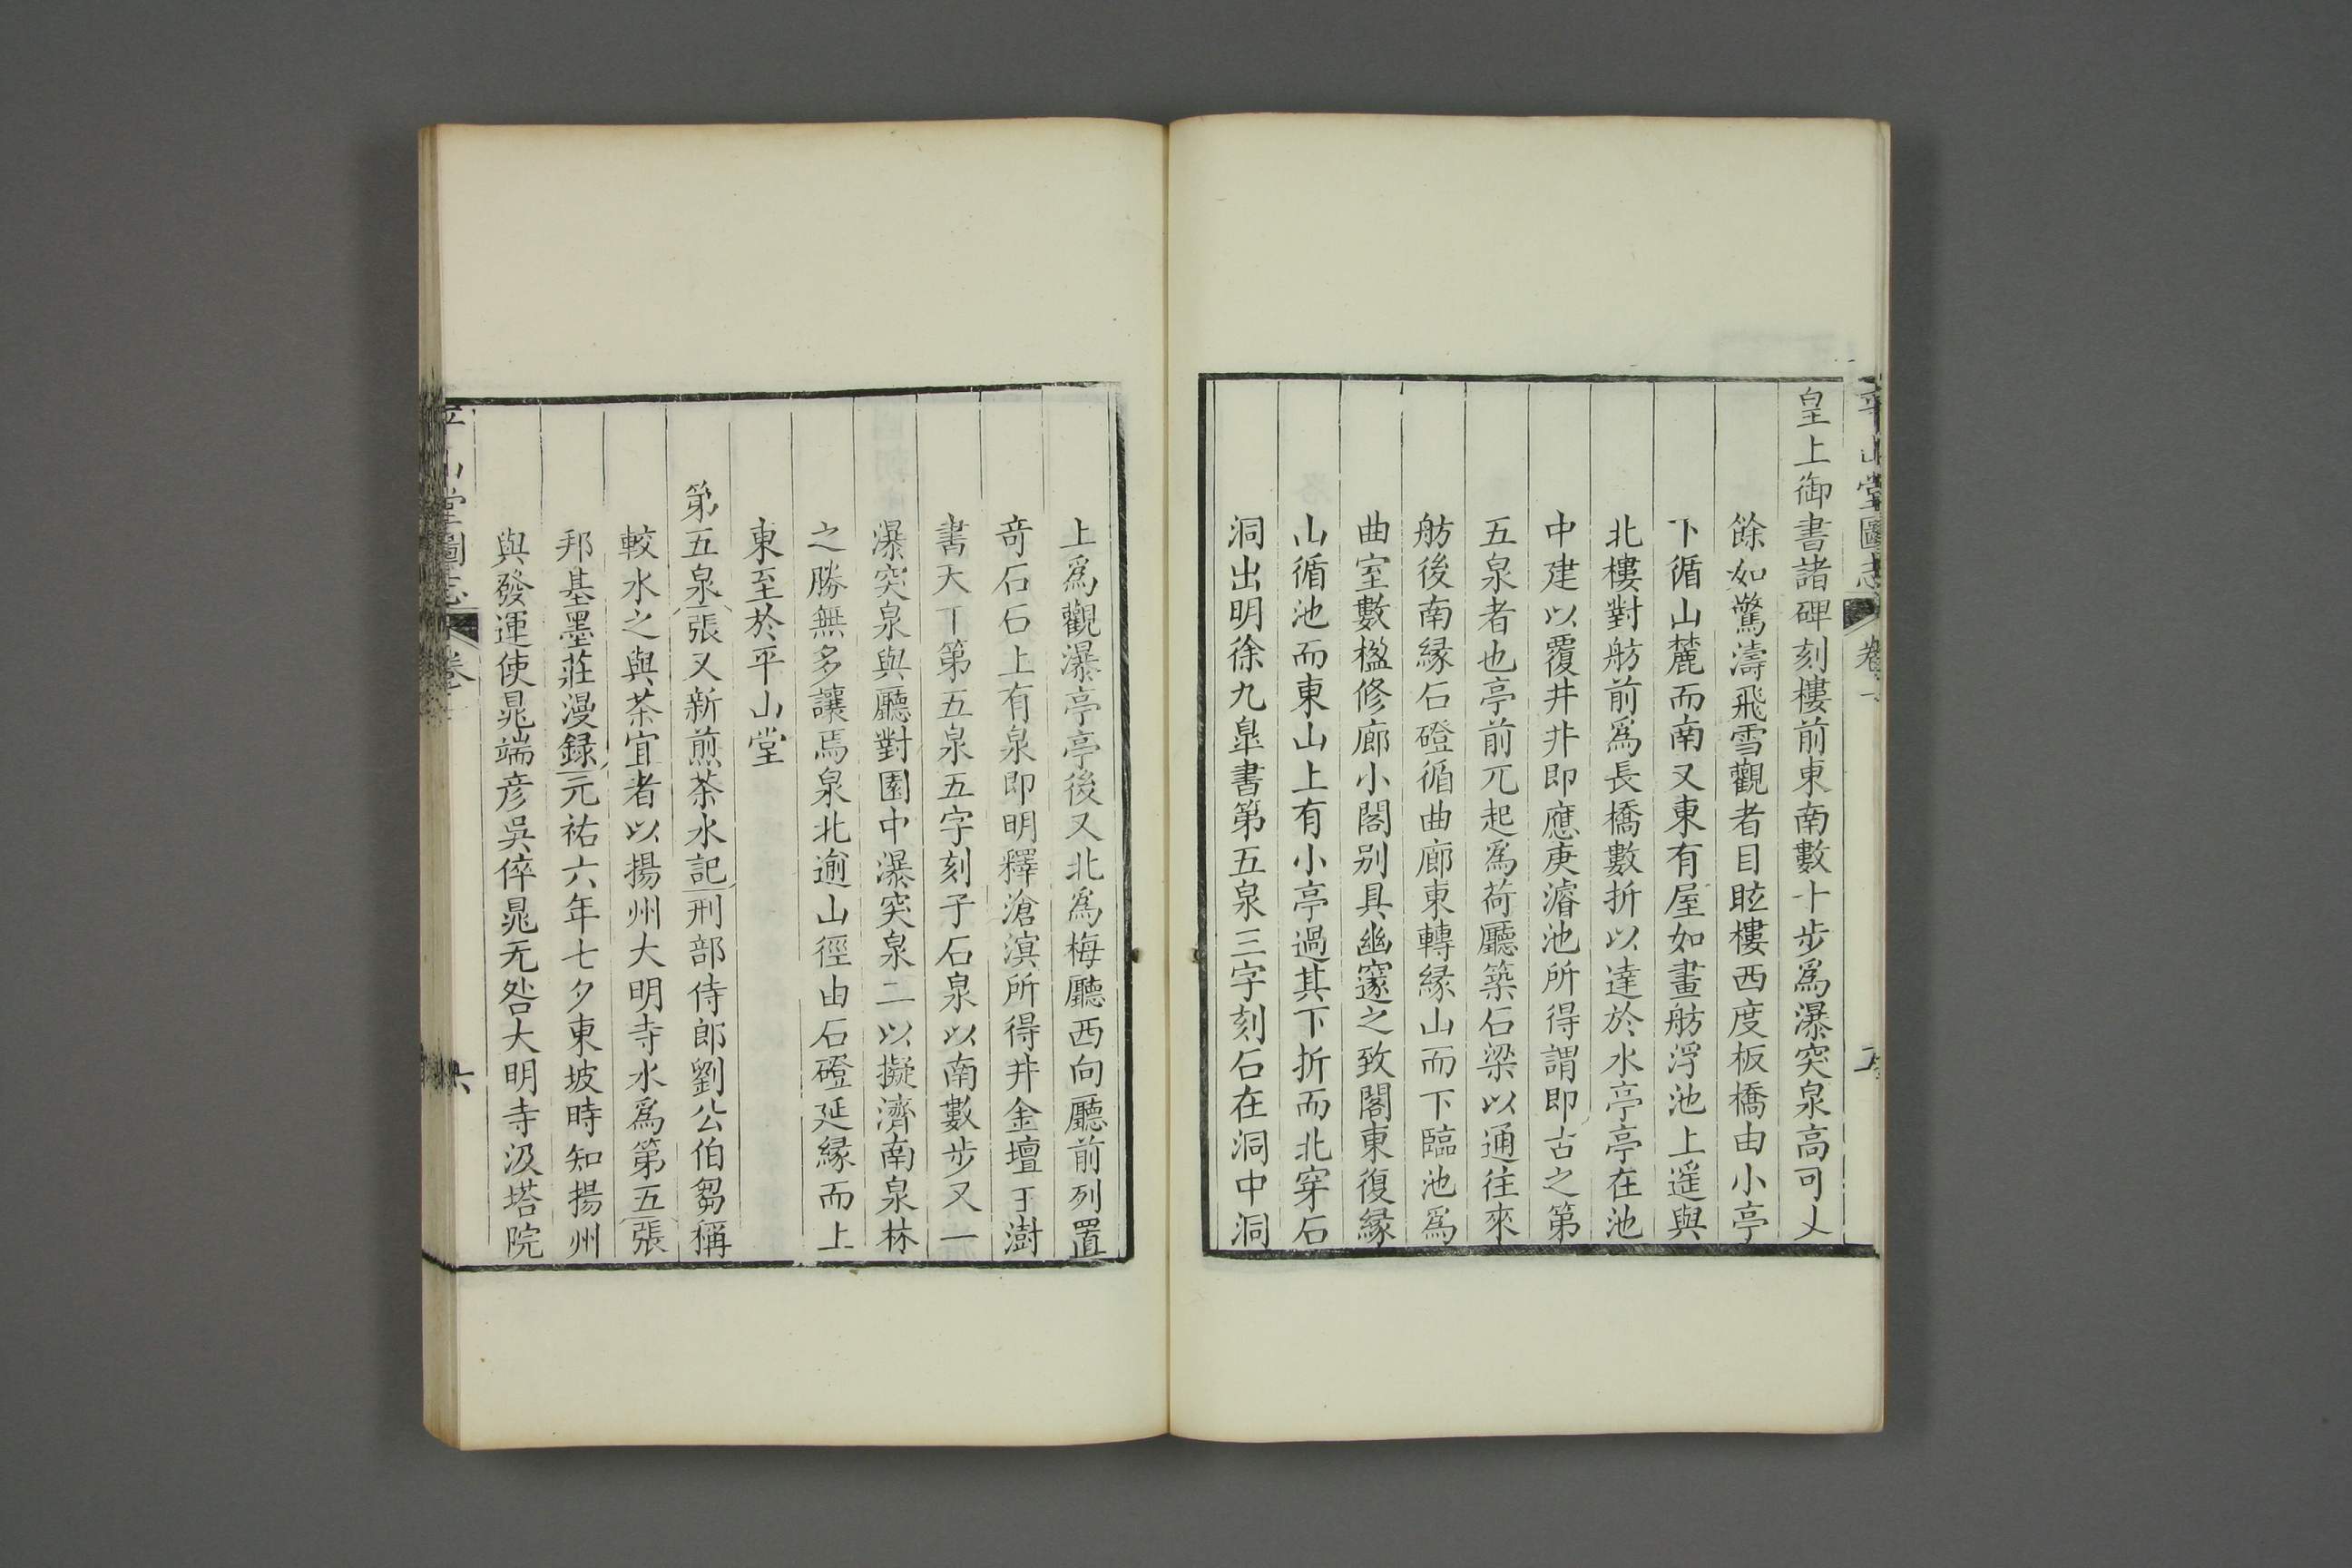 平山堂圖志 卷一
皇上御書諸碑刻樓前東南數十步爲瀑突泉高可乂
餘如驚濤飛雪觀者目眩樓西度板橋由小亭
下循山麓而南又東有屋如畫舫浮池上遥與
北樓對舫前爲長橋數折以達於水亭亭在池
中建以覆井井即應庚濬池所得謂即古之第
五泉者也亭前兀起爲荷廳築石梁以通往來
舫後南縁石磴循曲廊東轉縁山而下臨池爲
曲室數楹修廊小閣别具幽邃之致閣東復縁
山循池而東山上有小亭過其下折而北穿石
洞出明徐九臯書第五泉三字刻石在洞中洞
上爲觀瀑亭亭後又北爲梅廳西向廳前列置
奇石石上有泉即明釋滄溟所得井金壇王澍
書天下第五泉五字刻于石泉以南數步又一
瀑突泉與廳對園中瀑突泉二以擬濟南泉林
之勝無多讓焉泉北逾山徑由石磴延縁而上
東至於平山堂
第五泉張又新煎茶水記刑部侍郎劉公伯芻稱
較水之與茶宜者以揚州大明寺水爲第五張
邦基墨莊漫録元祐六年七夕東坡時知揚州
與發運使晁端彦吳倅晁无咎大明寺汲塔院
平山堂圖志 卷一 六